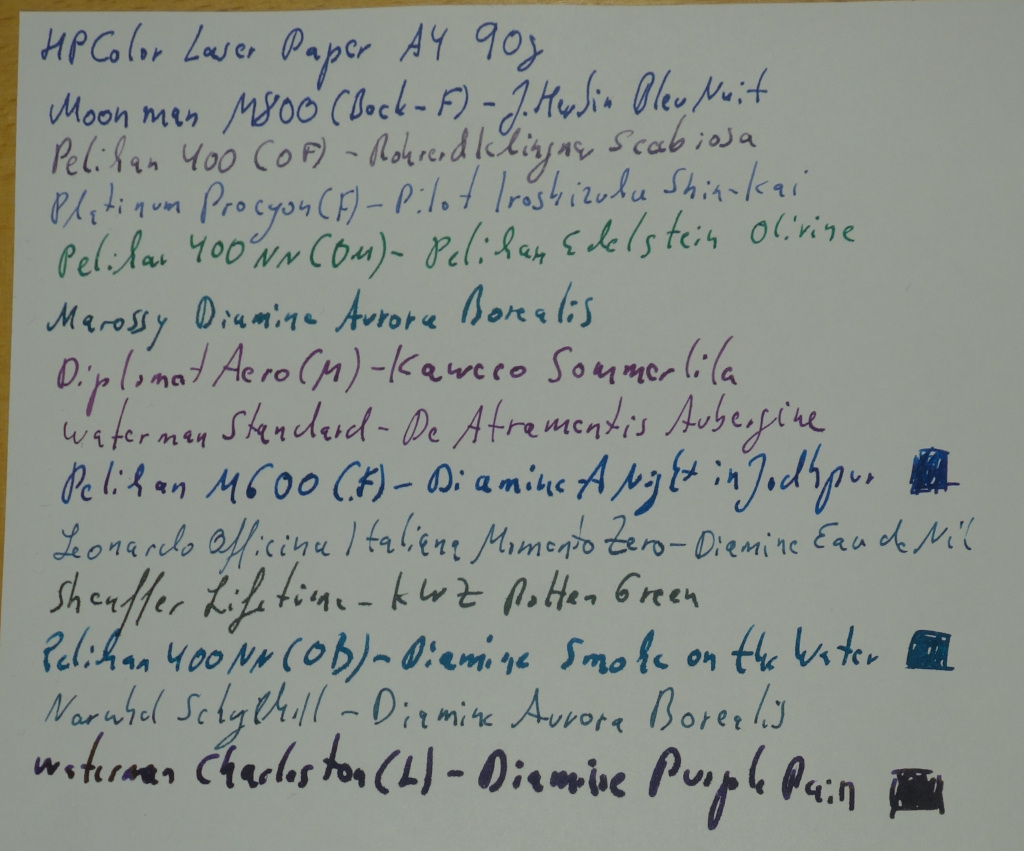 HP Color Laser Paper A4 90g
Moonman M800 (Bock-F) - J. Herbin Bleu Nuit
Pelikan 400 (OF) - Rohrer & Klingner Scabiosa
Platinum Procyon (F) - Pilot Iroshizuku Shin-Kai
Pelikan 400 NN (OM) - Pelikan Edelstein Olivine
Marossy Diamine Aurora Borealis
Diplomat Aero (M) - Kaweco Sommerlila
Waterman Standard - De Atramentis Aubergine
Pelikan M600 (F) - Diamine A Night in Jodhpur
Leonardo Officina Italiana Momento Zero - Diamine Eau de Nil
Sheaffer Lifetime - KWZ Rotten Green
Pelikan 400 NN (OB) - Diamine Smoke on the Water
Narwhal Schylkill - Diamine Aurora Borealis
Waterman Charleston (L) - Diamine Purple Pain